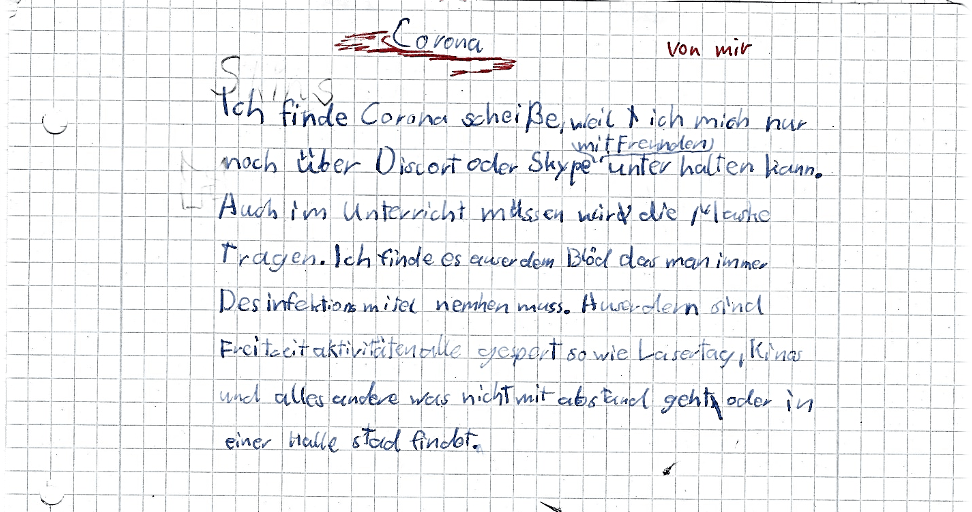 Corona
von mir
Ich finde Corona scheiße, weil ich mich nur
mit Freunden
noch über Discort oder Skype unter halten kann.
Auch im Unterricht müssen wird die Maske
Tragen. Ich finde es auserdem Blöd das man immer
Desinfektions mitel nemhen muss. Auserdem sind
Freitzeitaktivitäten alle gesport so wie Lasertag, Kinos
und alles andere was nicht mit abstand geht, oder in
einer Halle stad findet.